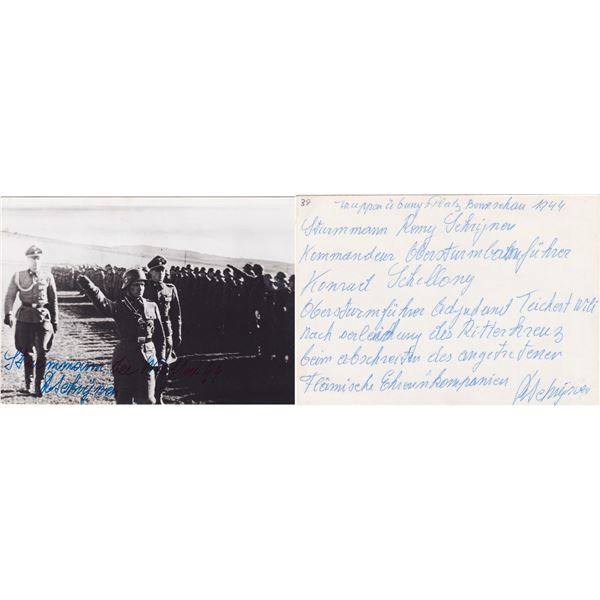 Sturmmann der Waffen SS
RSchrijnen
39
Truppenübungsplatz Beneschau 1944
Sturmmann Remy Schrijnen
Kommandeur Obersturmbannführer
Konrad Schellong
Obersturmführer Adjudant Teichert Willi
nach verleihung des Ritterkreuz
beim abschreiten des angetretener
Flämische Ehrenkompanien
RSchrijnen